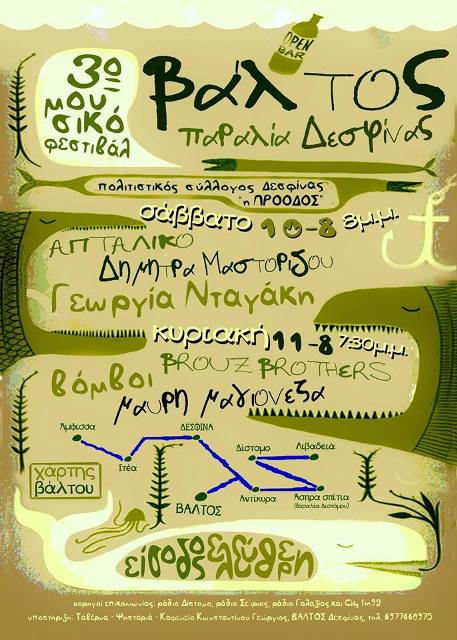 OPEN
BAR
3ο
μου
σικό
φεστιβάλ
βάλτος
παραλία Δεσφίνας
πολιτιστικός σύλλογος Δεσφίνας
"η ΠΡΟΟΔΟΣ"
σάββατο 10-8 8μ.μ.
ΑΠΤΑΛΙΚΟ
Δημητρα Μαστορίδου
Γεωργία Νταγάκη
κυριακή 11-8 7:30μ.μ.
BROUZ BROTHERS
βόμβοι
μαυρη μαγιονεζα
Άμφισσα
ΔΕΣΦΙΝΑ
Ιτέα
Δίστομο
Λιβαδειά
χάρτης
βάλτου
ΒΑΛΤΟΣ
Αντίκυρα
Άσπρα σπίτια
(Παραλία Διστόμου)
είσοδος ελεύθερη
χορηγοί επικοινωνίας: ράδιο Δίστομο, ράδιο Σείριος, ράδιο Γαλαξίας και
υποστηριξη: Ταβέρνα - Ψηταριά - Καφενείο Κωνσταντίνου Γεώργιος, ΒΑΛΤΟΣ Δεσφίνας, τηλ. 6977668975